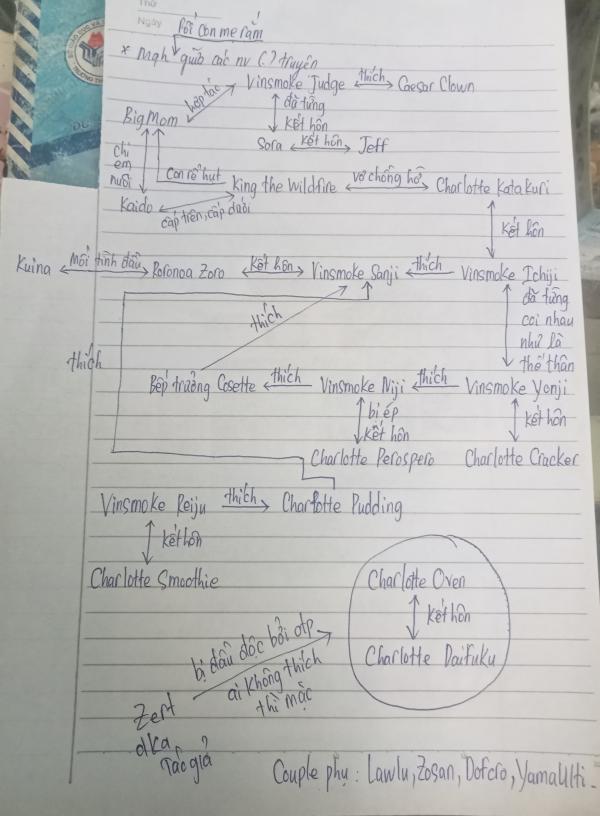 Thứ
Ngày
Rối con mẹ rắm
* Mqh giữa các nv () truyện
Vinsmoke Judge thích Caesar Clown
hợp tác
đã từng
kết hôn
Big Mom
Sora kết hôn Jeff
chị
em
nuôi
Con rể hụt King the Wildfire vợ chồng hờ Charlotte Katakuri
Kaido cấp trên, cấp dưới
kết hôn
Kuina mối tình đầu Roronoa Zoro kết hôn Vinsmoke Sanji thích Vinsmoke Ichiji
đã từng
coi nhau
như là
thế thân
thích
thích
Bếp trưởng Cosette thích Vinsmoke Niji thích Vinsmoke Yonji
bị ép
kết hôn
kết hôn
Charlotte Perospero Charlotte Cracker
Vinsmoke Reiju thích Charlotte Pudding
kết hôn
Charlotte Smoothie
Charlotte Oven
kết hôn
Charlotte Daifuku
bị đầu độc bởi otp
ai không thích
thì mặc
Zert
aka
Tác giả
Couple phụ: Lawlu, Zosan, Dofcro, YamaUlti.